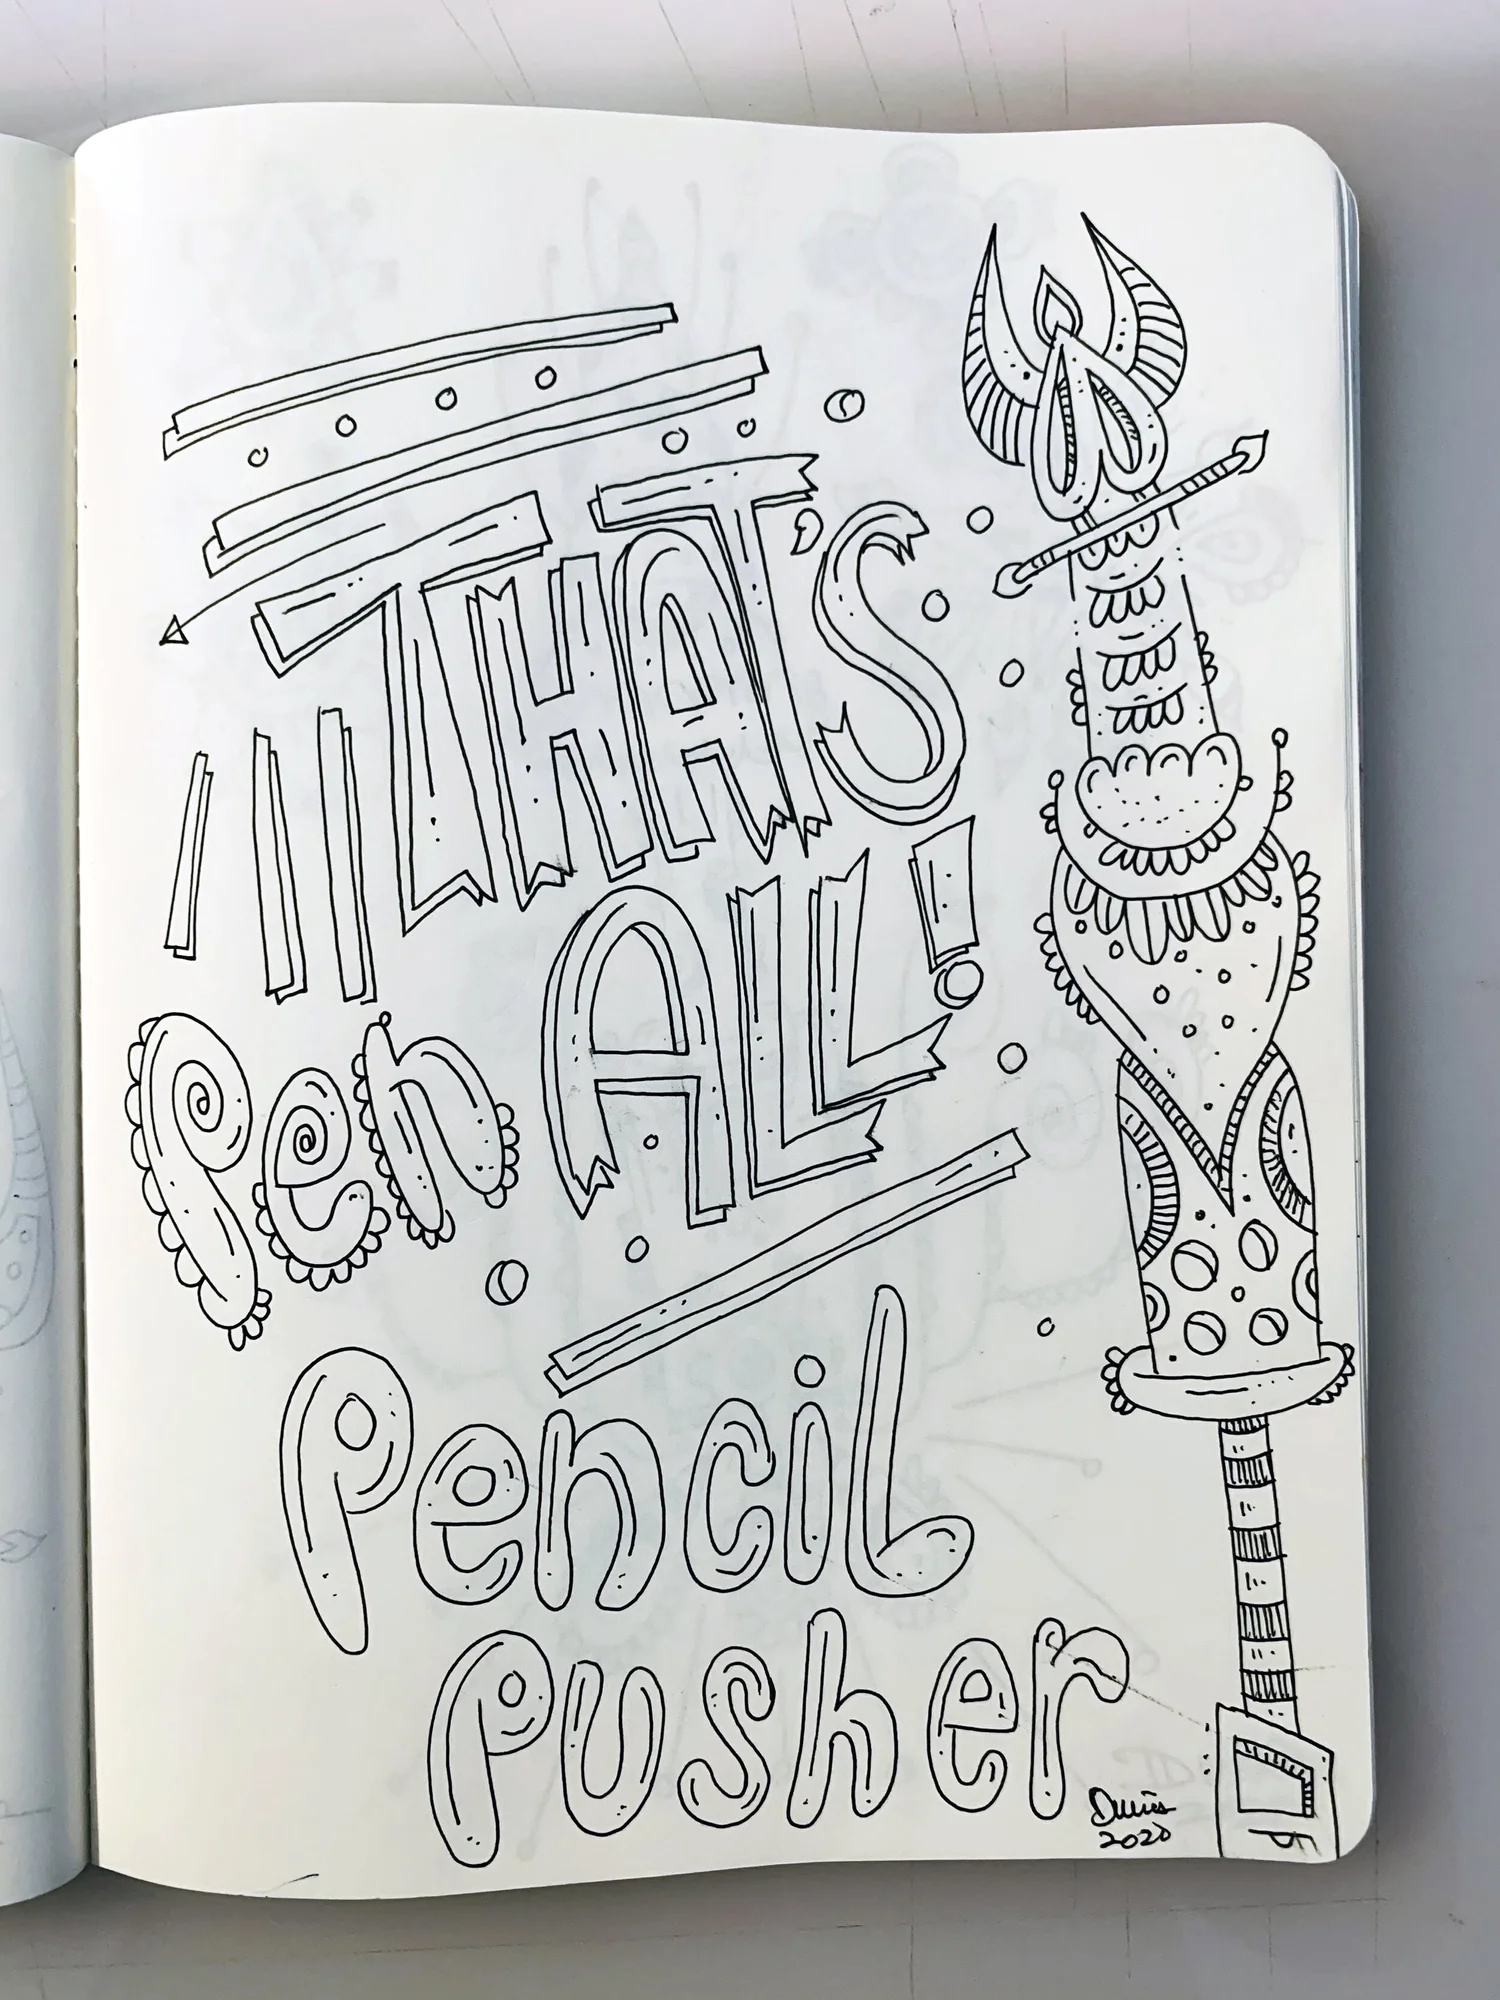 THAT'S
ALL!
Pen
Pencil
Pusher
2020